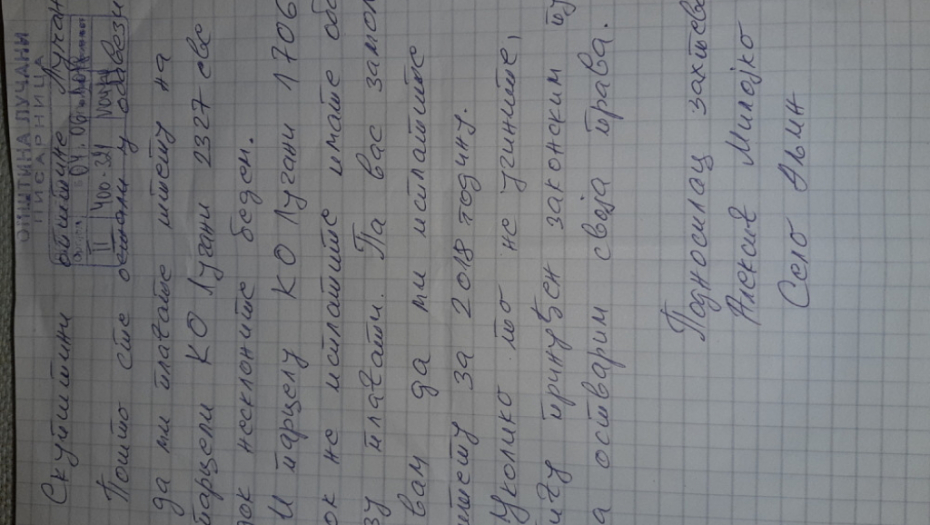 ОПШТИНА ЛУЧАНИ
ПИСАРНИЦА
Скупштини општине Лучан
Пошто сте остали у обавези
да ми плаћате штету на
парцели КО Лучани 2327 све
док несклоните беден.
И парцелу КО Лучани 1706
ок не исплатите имате оба
зу плаћати. Па вас замол
вам да ми исплатите
штету за 2018 годину.
Уколико то не учините,
ићу принуђен законским пу
а остварим своја права.
Подносилац захтева
Алексић Милојко
Село